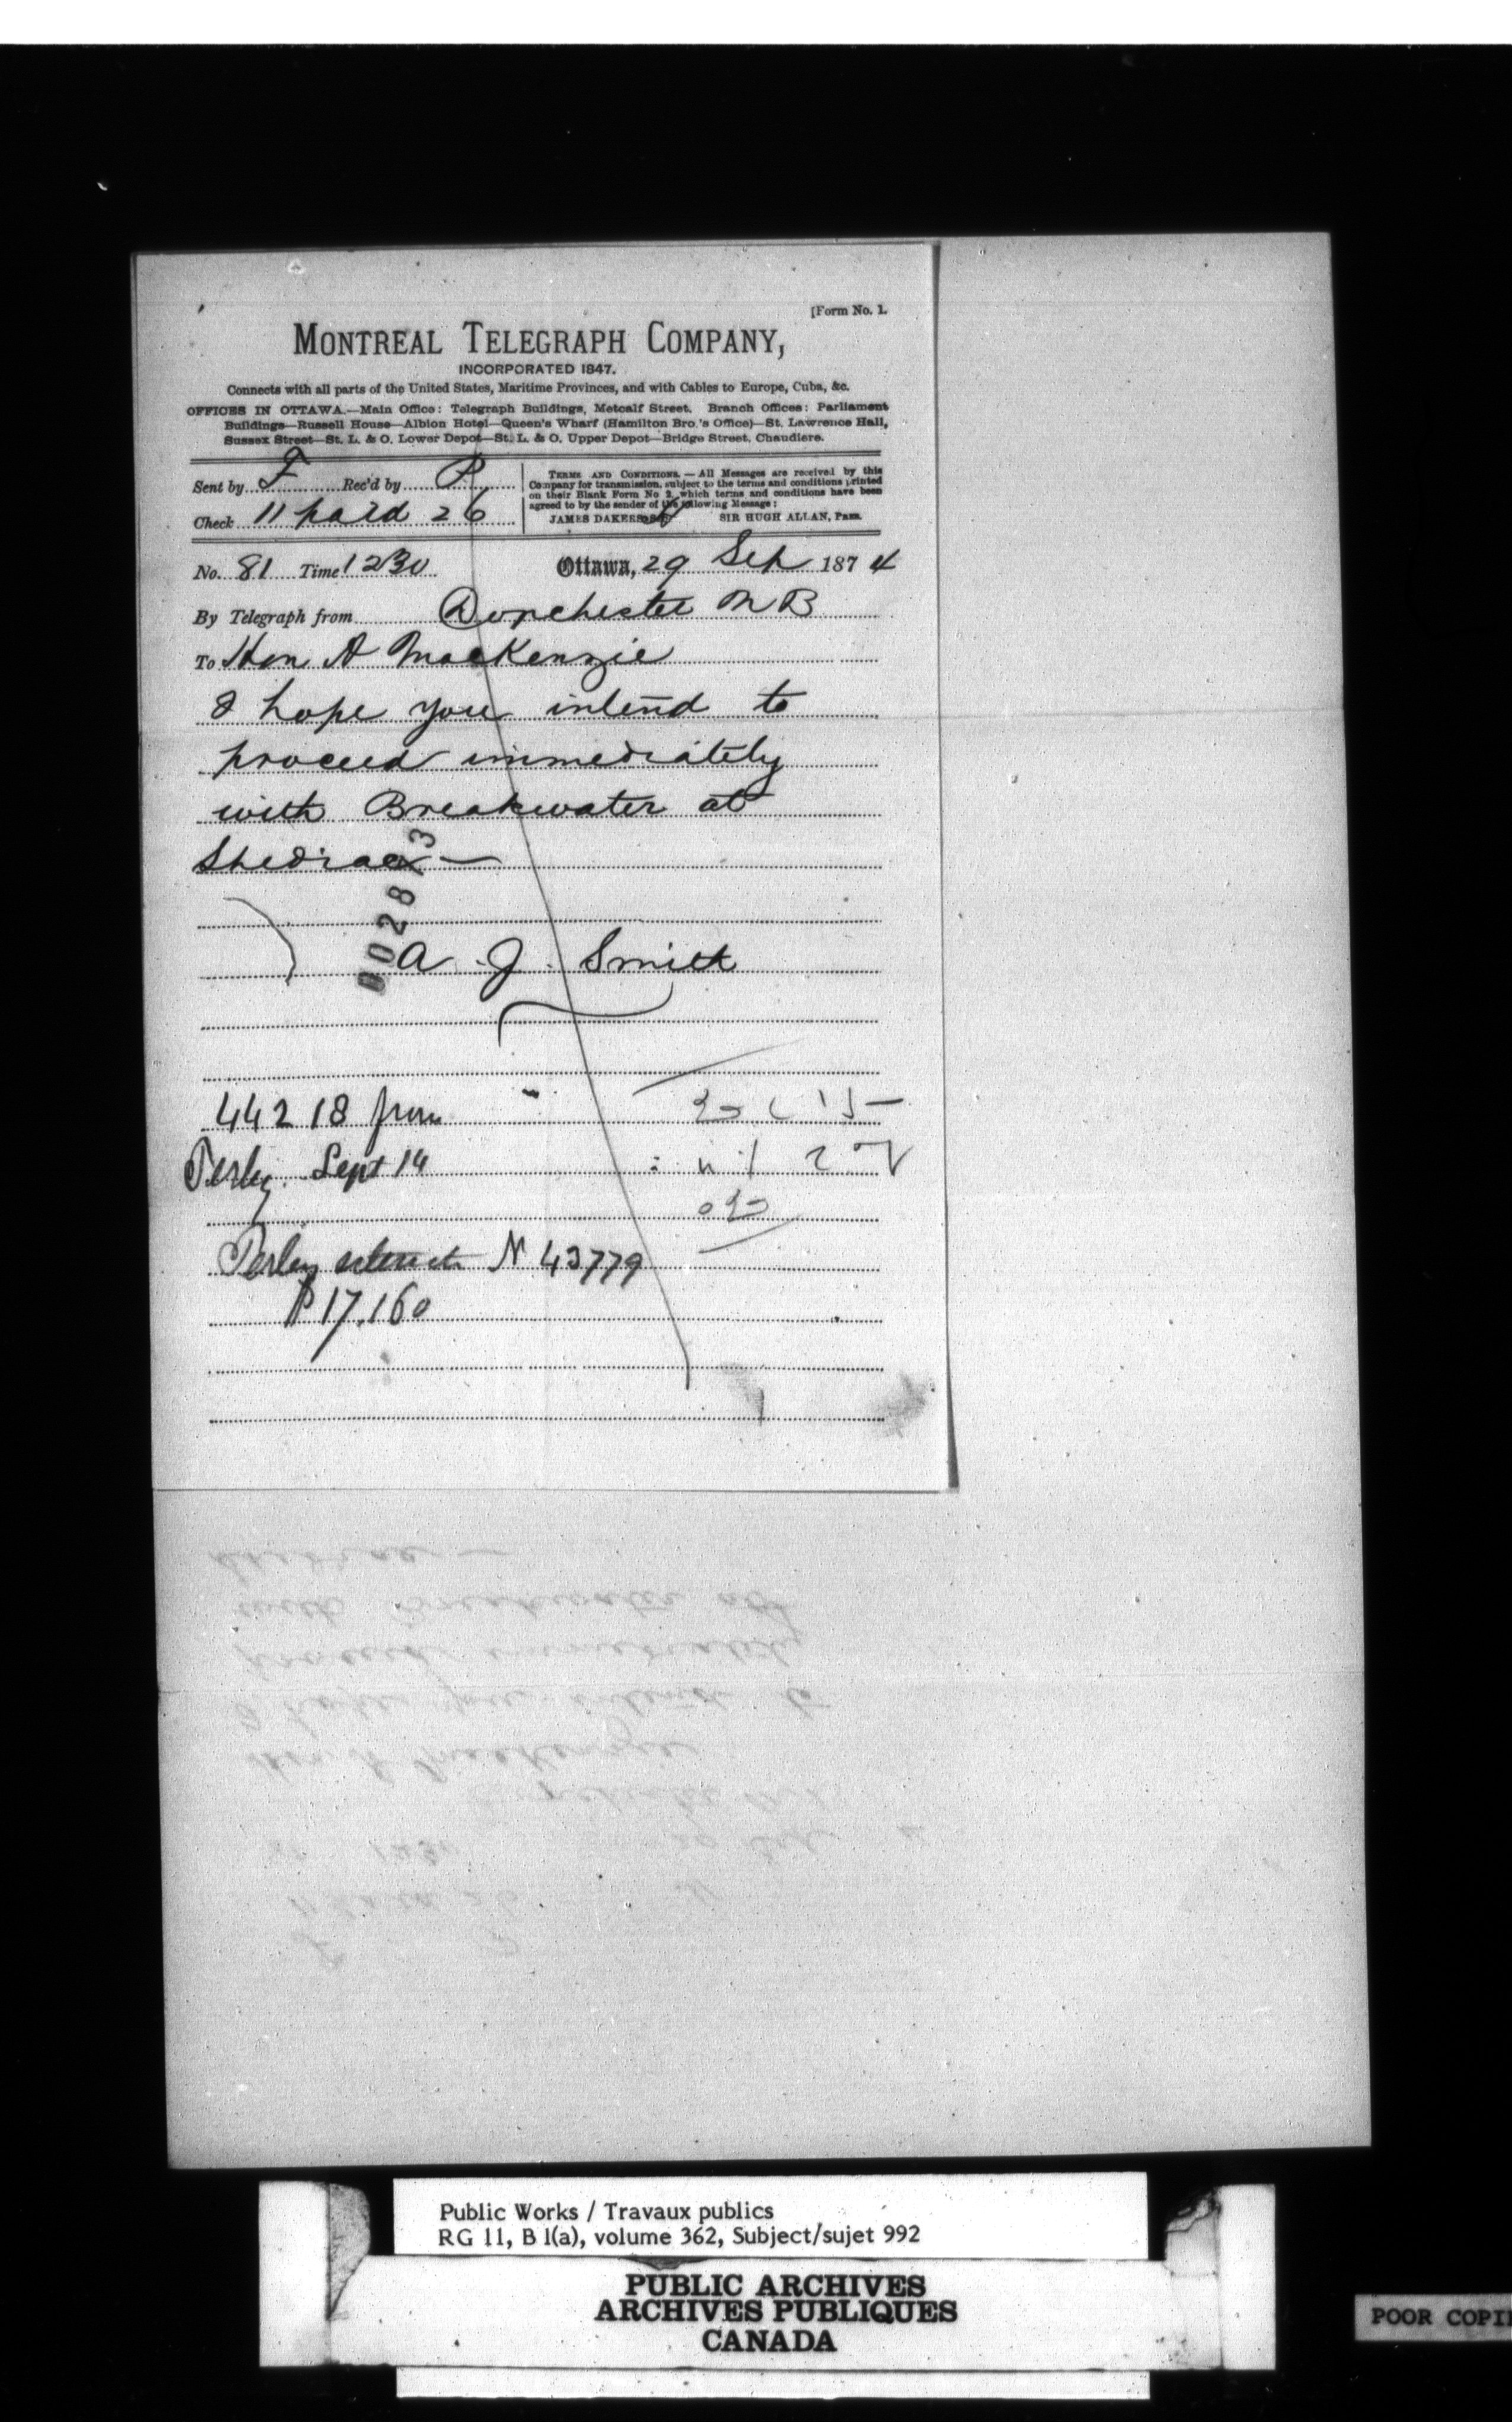 [Form No. 1.
MONTREAL TELEGRAPH COMPANY,
INCORPORATED 1847.
Connects with all parts of the United States, Maritime Provinces, and with Cables to Europe, Cuba, &c.
OFFICES IN OTTAWA.—Main Office: Telegraph Buildings, Metcalf Street. Branch Offices: Parliament
Buildings—Russell House—Albion Hotel—Queen's Wharf (Hamilton Bro.'s Office)—St. Lawrence Hall,
Sussex Street—St. L. & O. Lower Depot—St. L. & O. Upper Depot—Bridge Street, Chaudiere.
Sent by F Rec'd by P
Check 11 paid 26
TERMS AND CONDITIONS.—All Messages are received by this
Company for transmission, subject to the terms and conditions printed
on their Blank Form No 2, which terms and conditions have been
agreed to by the sender of the following Message:
JAMES DAKERS, SIR HUGH ALLAN, Pres.
No. 81 Time 1230 Ottawa, 29 Sep 1874
By Telegraph from Dorchester NB
To Hon A MacKenzie
I hope you intend to
proceed immediately
with Breakwater at
Shediac —
A. J. Smith
44218 from
Perley Sept 14
Perley N 43779
17.160
Public Works / Travaux publics
RG 11, B 1(a), volume 362, Subject/sujet 992
PUBLIC ARCHIVES
ARCHIVES PUBLIQUES
CANADA
POOR COPI